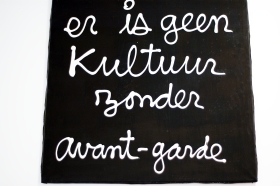 er is geen
Kultuur
zonder
avant-garde